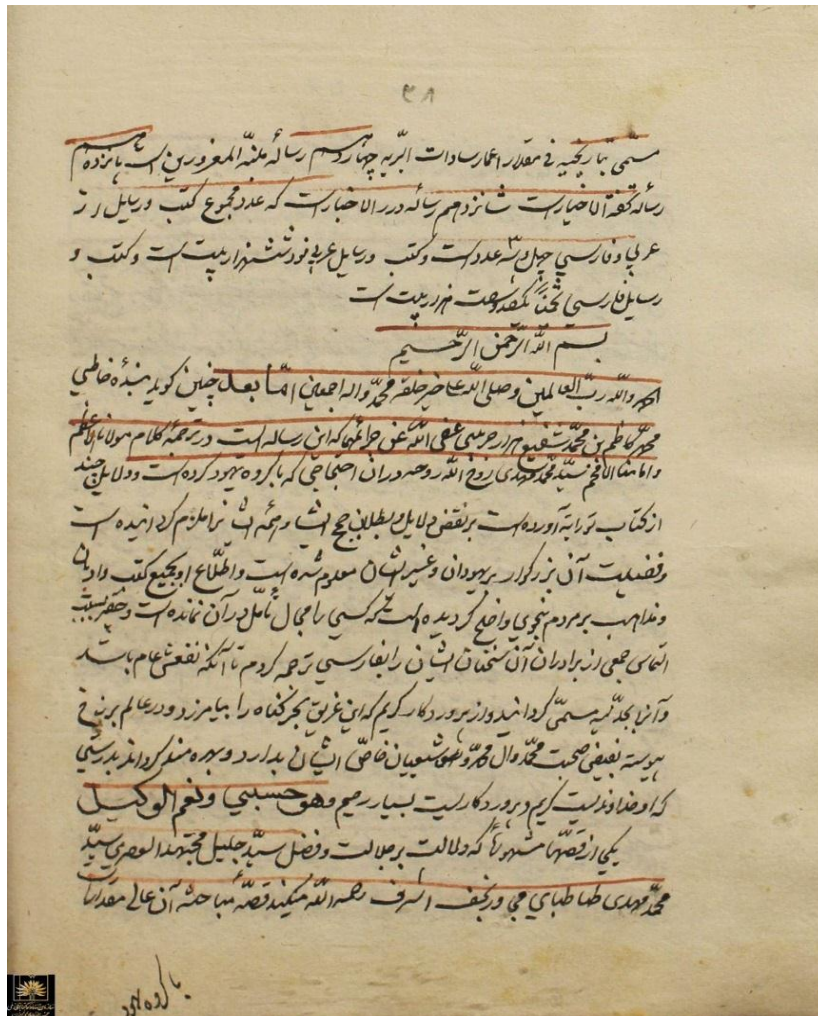 ۳۸
مسمّی بتاریخیه فی مقدار اعمار سادات البریه چهاردهم رسالهٔ ملنبّه المغرورین است پانزدهم
رساله تحفة الاخیار است شانزدهم رساله درر الاخبار است که عدد مجموع کتب و رسایل از
عربی و فارسی چهل و سه عدد است و کتب و رسایل عربی نود شش هزار بیت است و کتب و
رسایل فارسی تخیناً یکصد و هفت هزار بیت است
بسم الله الرحمن الرحیم
الحمدلله ربّ العالمین و صلی الله علی خیر خلقه محمّد و اله اجمعین امّا بعد چنین گوید بندهٔ خاطی
محمّد کاظم بن محمّد شفیع هزار جریبی عفی الله عن جرائمها که این رساله ایست در ترجمهٔ کلام مولانا الاعظم
و امامنا الافخم سیّد محمّد مهدی روح الله روحه در ان احتجاجی که با گروه یهود کرده است و دلایل چند
از کتاب توراة آورده است بر نقض دلایل و بطلان حجج ایشان و همه ایشان را ملزم گردانیده است
و فضیلت آن بزرگوار بر یهودان و غیر ایشان معلوم شده است و اطّلاع او بجمیع کتب و ادیان
و مذاهب بر مردم بنحوی واضح گردیده است که کسی را مجال تأمّل در آن نمانده است و حقیر بسبب
التماس جمعی از برادران آن سخنان ایشان را بفارسی ترجمه کردم تا آنکه نفعش عام باشد
و آنرا مسمّی گردانید و از پروردگار کریم که این غریق بحر گناه را بیامرزد و در عالم برزخ
پیوسته بفیض صحبت محمّد و آل محمّد و شیعیان خاصّ ایشان بدارد و بهره مند گرداند بدرستی
که او خداوندیست کریم و پروردگاریست بسیار رحیم و هو حسبی و نعم الوکیل
یکی از قصّهای مشهوره که دلالت بر جلالت و فضل سیّد جلیل مجتهد العصری سیّد
محمّد مهدی طباطبای در نجف اشرف رحمه الله میکند قصّهٔ مباحثه آن عالی مقدار است
با گروه یهود